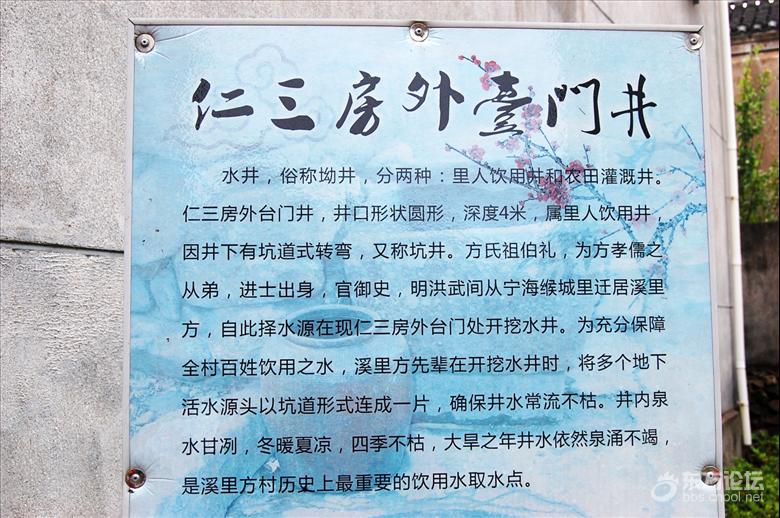 仁三房外臺門井
水井，俗称坳井，分两种：里人饮用井和农田灌溉井。
仁三房外台门井，井口形状圆形，深度4米，属里人饮用井，
因井下有坑道式转弯，又称坑井。方氏祖伯礼，为方孝儒之
从弟，进士出身，官御史，明洪武间从宁海缑城里迁居溪里
方，自此择水源在现仁三房外台门处开挖水井。为充分保障
全村百姓饮用之水，溪里方先辈在开挖水井时，将多个地下
活水源头以坑道形式连成一片，确保井水常流不枯。井内泉
水甘冽，冬暖夏凉，四季不枯，大旱之年井水依然泉涌不竭，
是溪里方村历史上最重要的饮用水取水点。
东方论坛
bbs.cnool.net